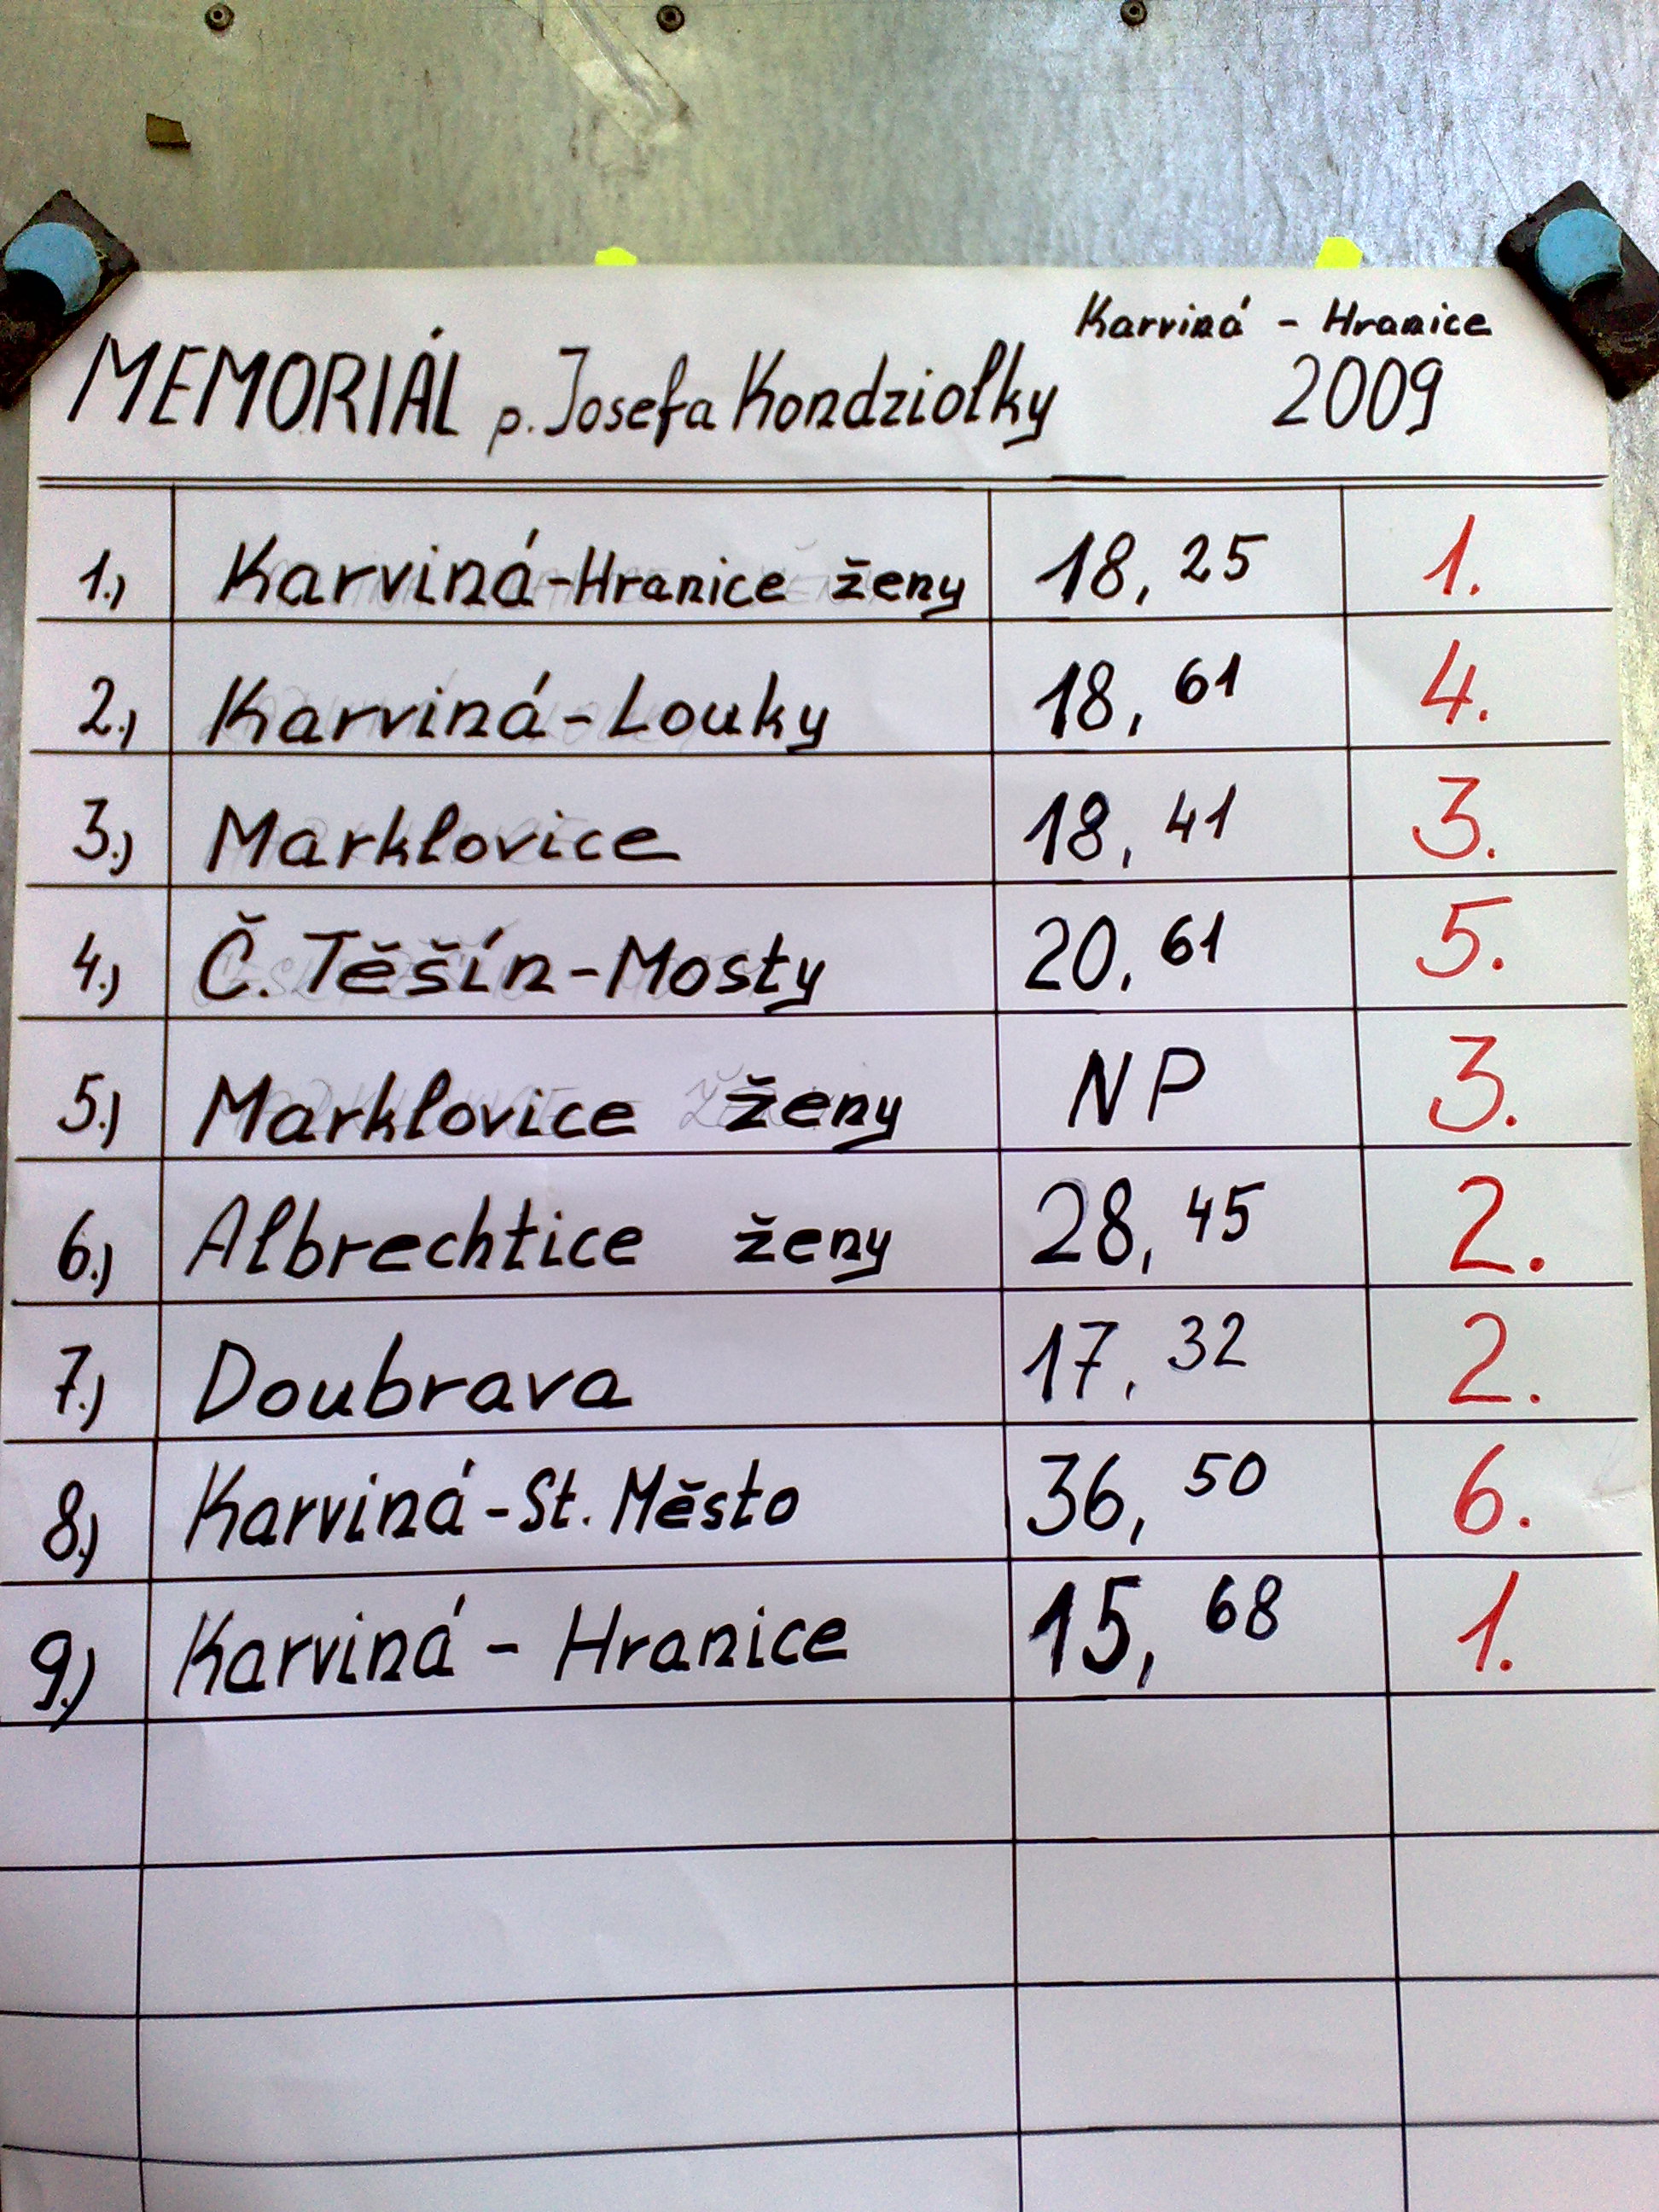 Karviná - Hranice
MEMORIÁL p. Josefa Kondziolky 2009
1.) Karviná-Hranice ženy 18,25 1.
2.) Karviná-Louky 18,61 4.
3.) Marklovice 18,41 3.
4.) Č. Těšín-Mosty 20,61 5.
5.) Marklovice ženy NP 3.
6.) Albrechtice ženy 28,45 2.
7.) Doubrava 17,32 2.
8.) Karviná-St. Město 36,50 6.
9.) Karviná - Hranice 15,68 1.